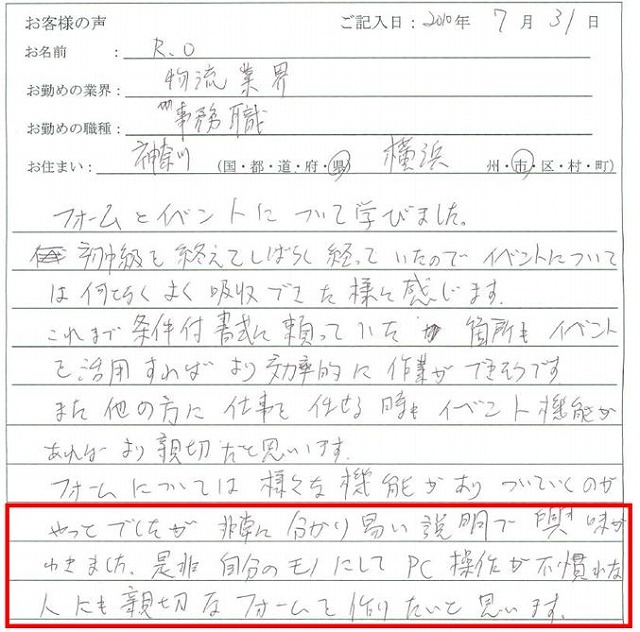 お客様の声 ご記入日：2010年 7月 31日
お名前 ： R.O
お勤めの業界： 物流業界
お勤めの職種： 事務職
お住まい： 神奈川 (国・都・道・府・県) 横浜 州・市・区・村・町)
フォームとイベントについて学びました。
初中級を終えてしばらく経っていたのでイベントについて
は何となくよく吸収できた様に感じます。
これまで条件付書式に頼っていた箇所もイベント
を活用すればより効率的に作業ができそうです
また他の方に仕事を任せる時もイベント機能が
あればより親切だと思います。
フォームについては様々な機能がありついていくのが
やっとでしたが非常に分かり易い説明で興味が
わきました。是非自分のモノにしてPC操作が不慣れな
人にも親切なフォームを作りたいと思います。